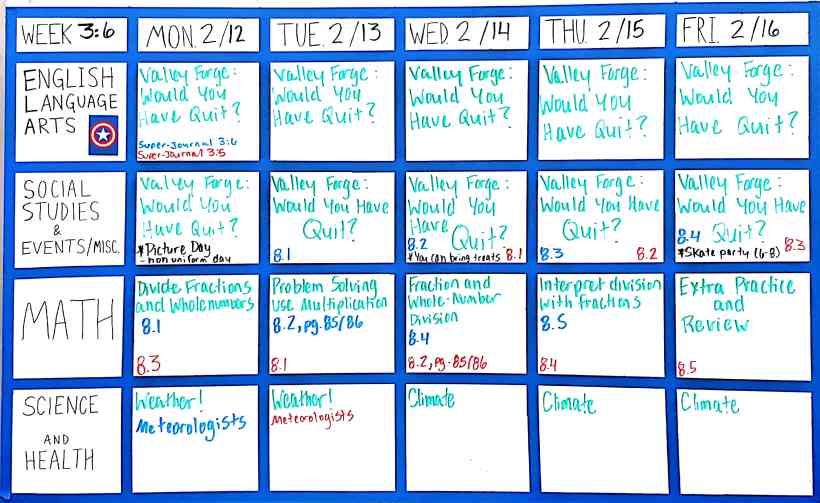 WEEK 3:6
MON. 2/12
TUE. 2/13
WED. 2/14
THU. 2/15
FRI. 2/16
ENGLISH
LANGUAGE
ARTS
Valley Forge:
Would You
Have Quit?
Super-Journal 3:6
Super-Journal 3:5
Valley Forge:
Would You
Have Quit?
Valley Forge:
Would You
Have Quit?
Valley Forge:
Would You
Have Quit?
Valley Forge:
Would You
Have Quit?
SOCIAL
STUDIES
&
EVENTS/MISC.
Valley Forge:
Would You
Have Quit?
*Picture Day
- non uniform day
Valley Forge:
Would You Have
Quit?
8.1
Valley Forge:
Would You
Have
8.2 Quit?
*You can bring treats 8.1
Valley Forge:
Would You Have
Quit?
8.3 8.2
Valley Forge:
Would You Have
8.4 Quit? 8.3
*Skate party (6-8)
MATH
Divide Fractions
and Whole numbers
8.1
8.3
Problem Solving
use Multiplication
8.2, pg. 85/86
8.1
Fraction and
Whole-Number
Division
8.4
8.2, pg. 85/86
Interpret division
with fractions
8.5
8.4
Extra Practice
and
Review
8.5
SCIENCE
AND
HEALTH
Weather!
Meteorologists
Weather!
Meteorologists
Climate
Climate
Climate